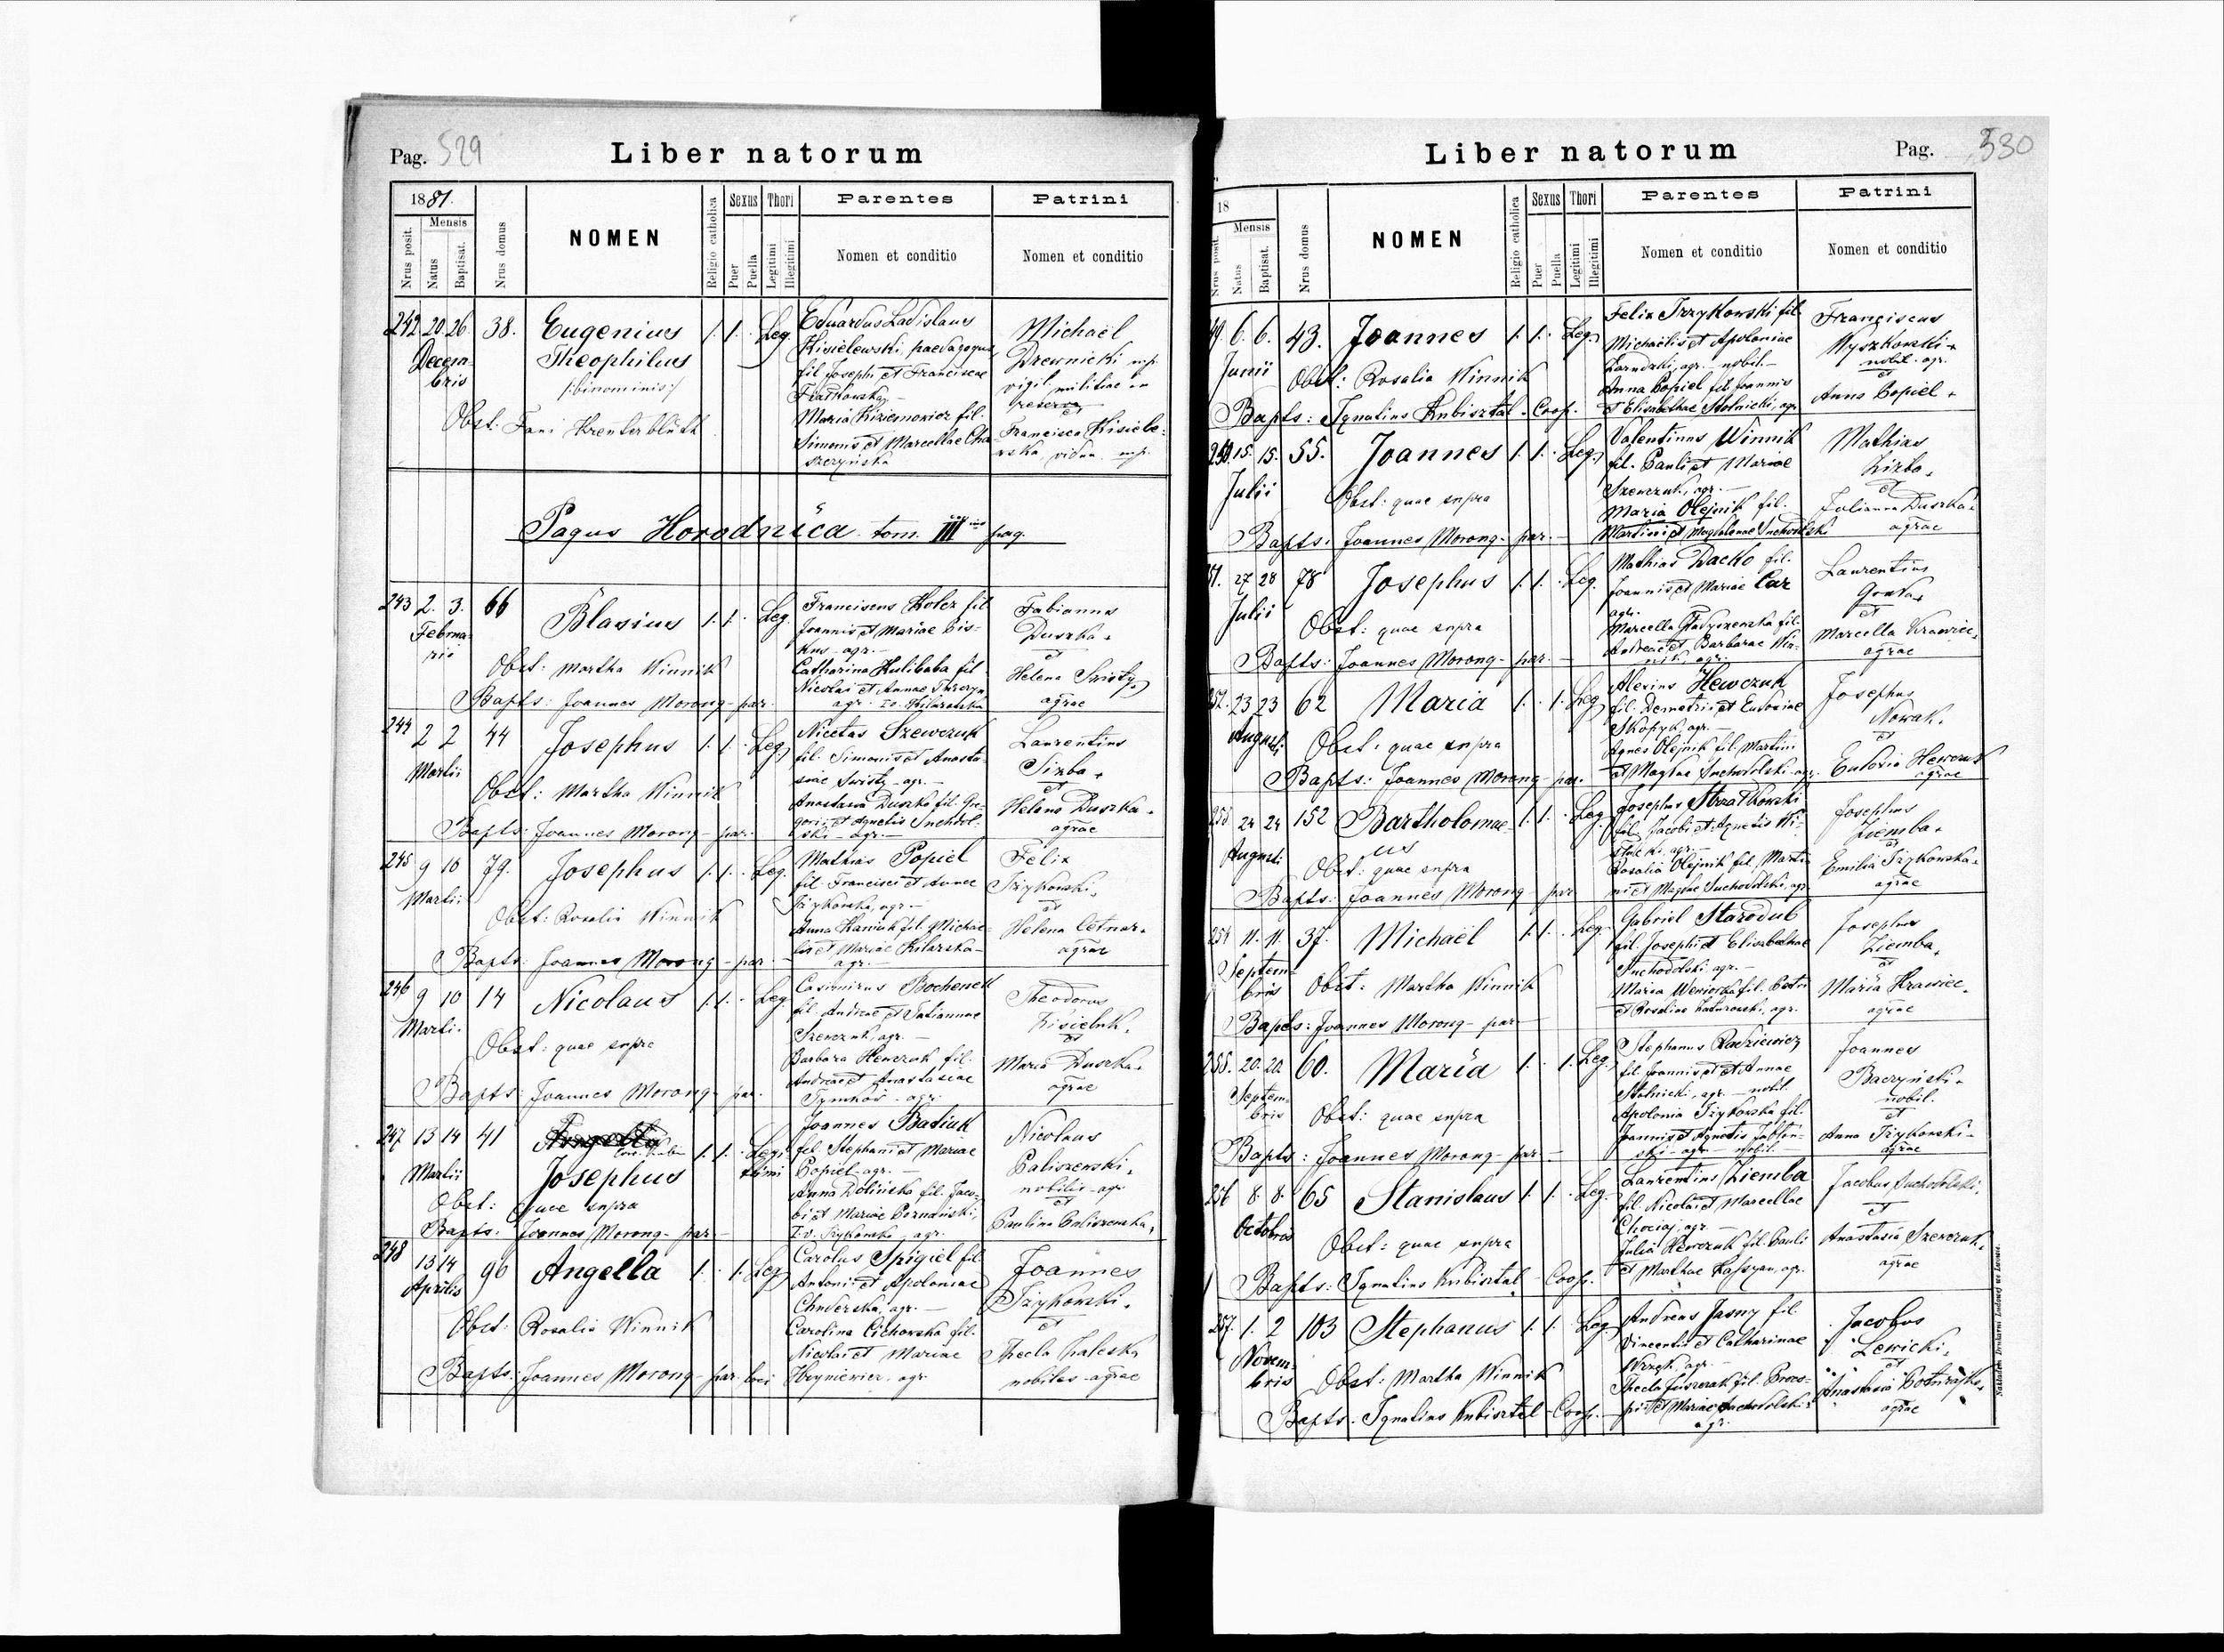 Pag. 529
Liber natorum
1881.
Nrus posit.
Mensis
Natus
Baptisat.
Nrus domus
NOMEN
Religio catholica
Sexus
Puer
Puella
Thori
Legitimi
Illegitimi
Parentes
Nomen et conditio
Patrini
Nomen et conditio
242 20. 26 38. Eugenius 1. 1. Leg.
Decem-
bris
Theophilus
/:binominis:/
Obst.
Eduardus Ladislaus
Kisielewski, paedagogus
fil. Josephi et Franciscae
Maria
Simonis et Marcellae Cha-
Michaël
Drewnicki mp.
vigil militiae in
reserva
et
Francisca Kisiele-
wska, vidua mp.
Pagus Horodnica tom. III pag.
243 2. 3. 66 Blasius 1. 1. Leg.
Februa-
rii
Obst: Martha Winnik
Bapts: Joannes Morong - par.
Franciscus Kolcz fil.
Joannis et Mariae Pis-
kus - agr. -
Catharina Kulibaba fil.
Nicolai et Annae
Fabianus
Duszka.
et
Helena Swisty
agrae
244 2 2 44 Josephus 1. 1. Leg.
Martii
Obst: Martha Winnik
Bapts: Joannes Morong - par.
Nicetas Szewczuk
fil. Simonis et Anasta-
siae Swisty - agr. -
Anastasia Duszka fil. Gre-
gorii et Agnetis Suchodol-
ski - agr. -
Laurentius
Sizba.
et
Helena Duszka.
agrae
245 9 10 79. Josephus 1. 1. Leg.
Martii
Obst: Rosalia Winnik
Bapts: Joannes Morong - par.
Mathias Popiel
fil. Francisci et Annae
agr. -
Anna Haniak fil. Michae-
lis et Mariae
agr. -
Felix
et
Helena Cetnar.
agrae
246 9 10 14 Nicolaus 1. 1. Leg.
Martii
Obst: quae supra
Bapts: Joannes Morong - par.
Casimirus Bochenek
fil. Andreae et Tatiannae
Szewczuk, agr. -
Barbara Hewczuk fil.
Andreae et Anastasiae
Tymków - agr.
Theodorus
Kisieluk.
et
Maria Duszka.
agrae
247 13 14 41 1. 1. Legi-
timi
Martii
Josephus
Obst: quae supra
Bapts: Joannes Morong - par.
Joannes Badiuk
fil. Stephani et Mariae
Popiel - agr. -
Anna Dolińska fil. Jaco-
bi et Mariae Poznański,
Nicolaus
Paliszewski,
nobilis - agr.
et
Paulina Paliszewska,
248 13 14 90 Angella 1. 1. Leg.
Aprilis
Obst: Rosalia Winnik
Bapts: Joannes Morong - par. loci
Carolus Spigiel fil.
Antoni et Apoloniae
agr. -
Carolina Cichowska fil.
Nicolai et Mariae
Hryniewicz, agr.
Joannes
et
Thecla Zaleska
nobiles - agrae
Liber natorum
Pag. 530
18
Nrus posit.
Mensis
Natus
Baptisat.
Nrus domus
NOMEN
Religio catholica
Sexus
Puer
Puella
Thori
Legitimi
Illegitimi
Parentes
Nomen et conditio
Patrini
Nomen et conditio
49. 6. 6. 43. Joannes 1. 1. Leg.
Junii
Obst: Rosalia Winnik
Bapts: Ignatius Kubisztal - Coop.
Michaëlis et Apoloniae
agr. - nobil. -
Anna Popiel fil. Joannis
et Elisabethae Stolnicki, agr.
Franciscus
Myszkowski
nobil. agr.
et
Anna Popiel.
250. 15. 15. 55. Joannes 1. 1. Leg.
Julii
Obst: quae supra
Bapts: Joannes Morong - par. -
Valentinus Winnik
fil. Pauli et Mariae
Szewczuk, agr. -
Maria Olejnik fil.
Martini et Magdalenae Suchodolski
Mathias
et
Julianna Duszka.
agrae
51. 27 28 78 Josephus 1. 1. Leg.
Julii
Obst: quae supra
Bapts: Joannes Morong - par. -
Mathias Dacko fil.
Joannis et Mariae Car
agr.
Marcella
Andreae et Barbarae Win-
nik, agr.
Laurentius
et
Marcella Krawiec.
agrae
252. 23 23 62 Maria 1. 1. Leg.
Augusti
Obst: quae supra
Bapts: Joannes Morong - par.
Alexius Hewczuk
fil. Demetrii et Eudoxiae
Skopyk, agr. -
Agnes Olejnik fil. Martini
et Magdae Suchodolski - agr.
Josephus
Nowak.
et
Eudoxia Hewczuk
agrae
253 24 24 152 Bartholomae- 1. 1. Leg.
us
Augusti
Obst: quae supra
Bapts: Joannes Morong - par.
Josephus Strzałkowski
fil. Jacobi et Agnetis
agr. -
Rosalia Olejnik fil. Marti-
ni et Magdae Suchodolski, agr.
Josephus
Ziemba.
et
Emilia
agrae
254 11. 11. 37. Michaël 1. 1. Leg.
Septem-
bris
Obst: Martha Winnik
Bapts: Joannes Morong - par.
Gabriel Starodub
fil. Josephi et Elisabethae
Suchodolski agr. -
Maria fil. Petri
et Rosaliae agr.
Josephus
Ziemba,
et
Maria Krawiec.
agrae
255. 20. 20. 60. Maria 1. 1. Leg.
Septem-
bris
Obst: quae supra
Bapts: Joannes Morong - par. -
Stephanus Radziewicz
fil. Joannis et Annae
Stolnicki, agr. - nobil.
Apolonia
Joannis et Agnetis Jabłon-
ski - agr. - nobil. -
Joannes
Baczyński.
nobil.
et
Anna
agrae
256 8. 8. 65 Stanislaus 1. 1. Leg.
Octobris
Obst: quae supra
Bapts: Ignatius Kubisztal - Coop.
Laurentius Ziemba
fil. Nicolai et Marcellae
Chociaj, agr.
Julia Hewczuk fil. Pauli
et Marthae Kassyan, agr.
Jacobus Suchodolski.
et
Anastasia Szewczuk.
agrae
257. 1. 2 103 Stephanus 1. 1. Leg.
Novem-
bris
Obst: Martha Winnik
Bapts: Ignatius Kubisztal - Coop. -
Andreas Jasny fil.
Vincentii et Catharinae
agr. -
Thecla fil. Proco-
pi et Mariae Suchodolski
agr.
Jacobus
Lewicki,
et
Anastasia
agrae
Nakładem Drukarni Ludowej we Lwowie.